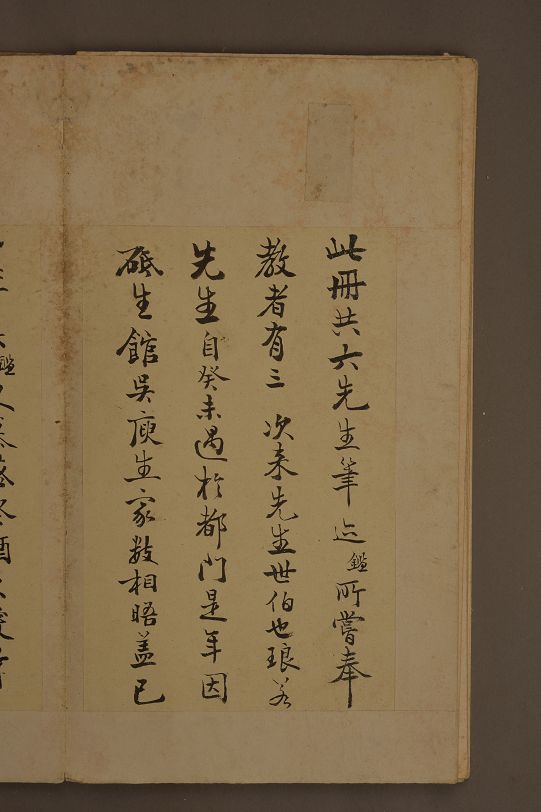 此冊共六先生筆迹鑑所嘗奉
教者有三 次耒先生世伯也琅若
先生自癸未遇於都門是年因
砥生館吳庾生家數相晤蓋已
鑑